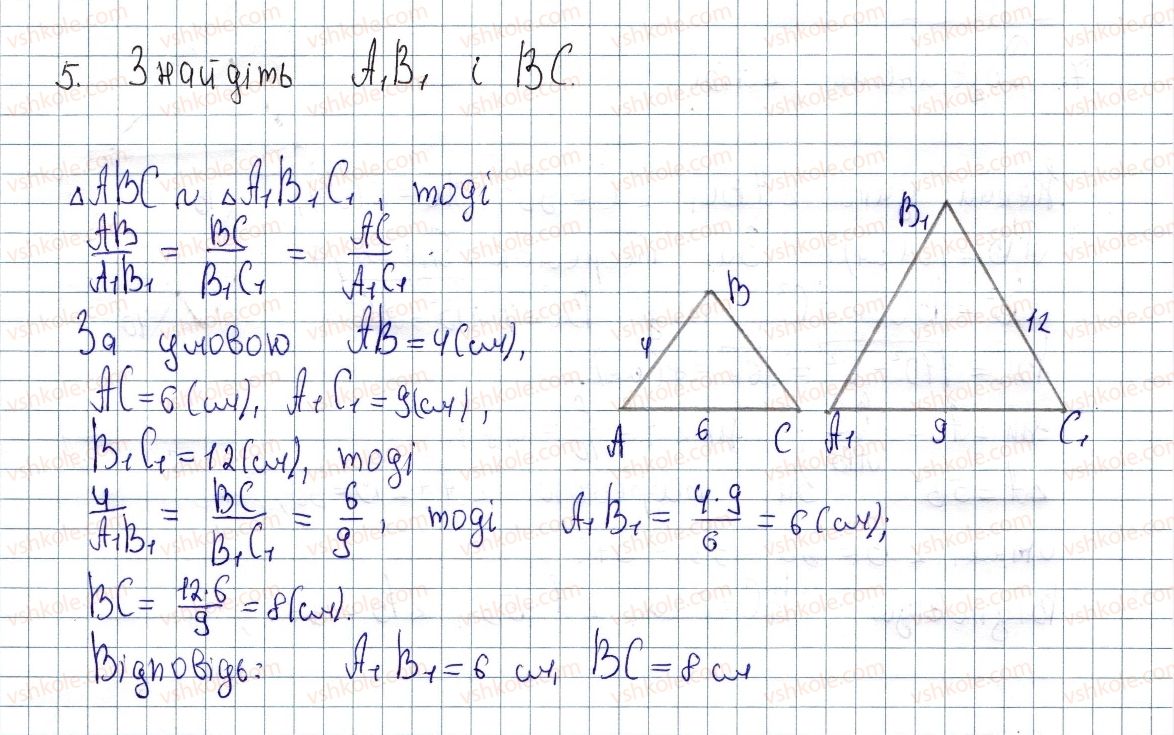 5. Знайдіть A₁B₁ і BC.
△ABC ~ △A₁B₁C₁, тоді
AB/A₁B₁ = BC/B₁C₁ = AC/A₁C₁
За умовою AB = 4(см),
AC = 6(см), A₁C₁ = 9(см),
B₁C₁ = 12(см), тоді
4/A₁B₁ = BC/B₁C₁ = 6/9, тоді A₁B₁ = 4·9/6 = 6(см);
BC = 12·6/9 = 8(см).
Відповідь: A₁B₁ = 6 см, BC = 8 см
B
4
A
6
C
B₁
12
A₁
9
C₁
vshkole.com